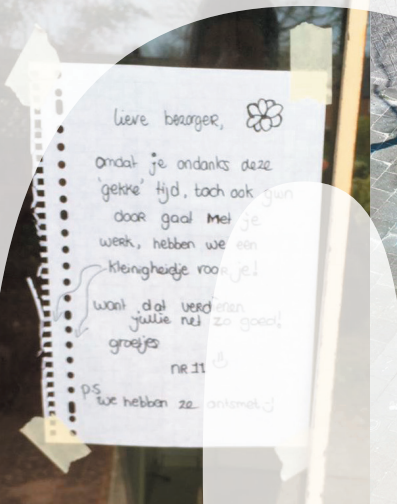 lieve bezorger,
omdat je ondanks deze
'gekke' tijd, toch ook gwn
door gaat met je
werk, hebben we een
kleinigheidje voor je!
want dat verdienen
jullie net zo goed!
groetjes
nr. 11
p.s. we hebben ze ontsmet